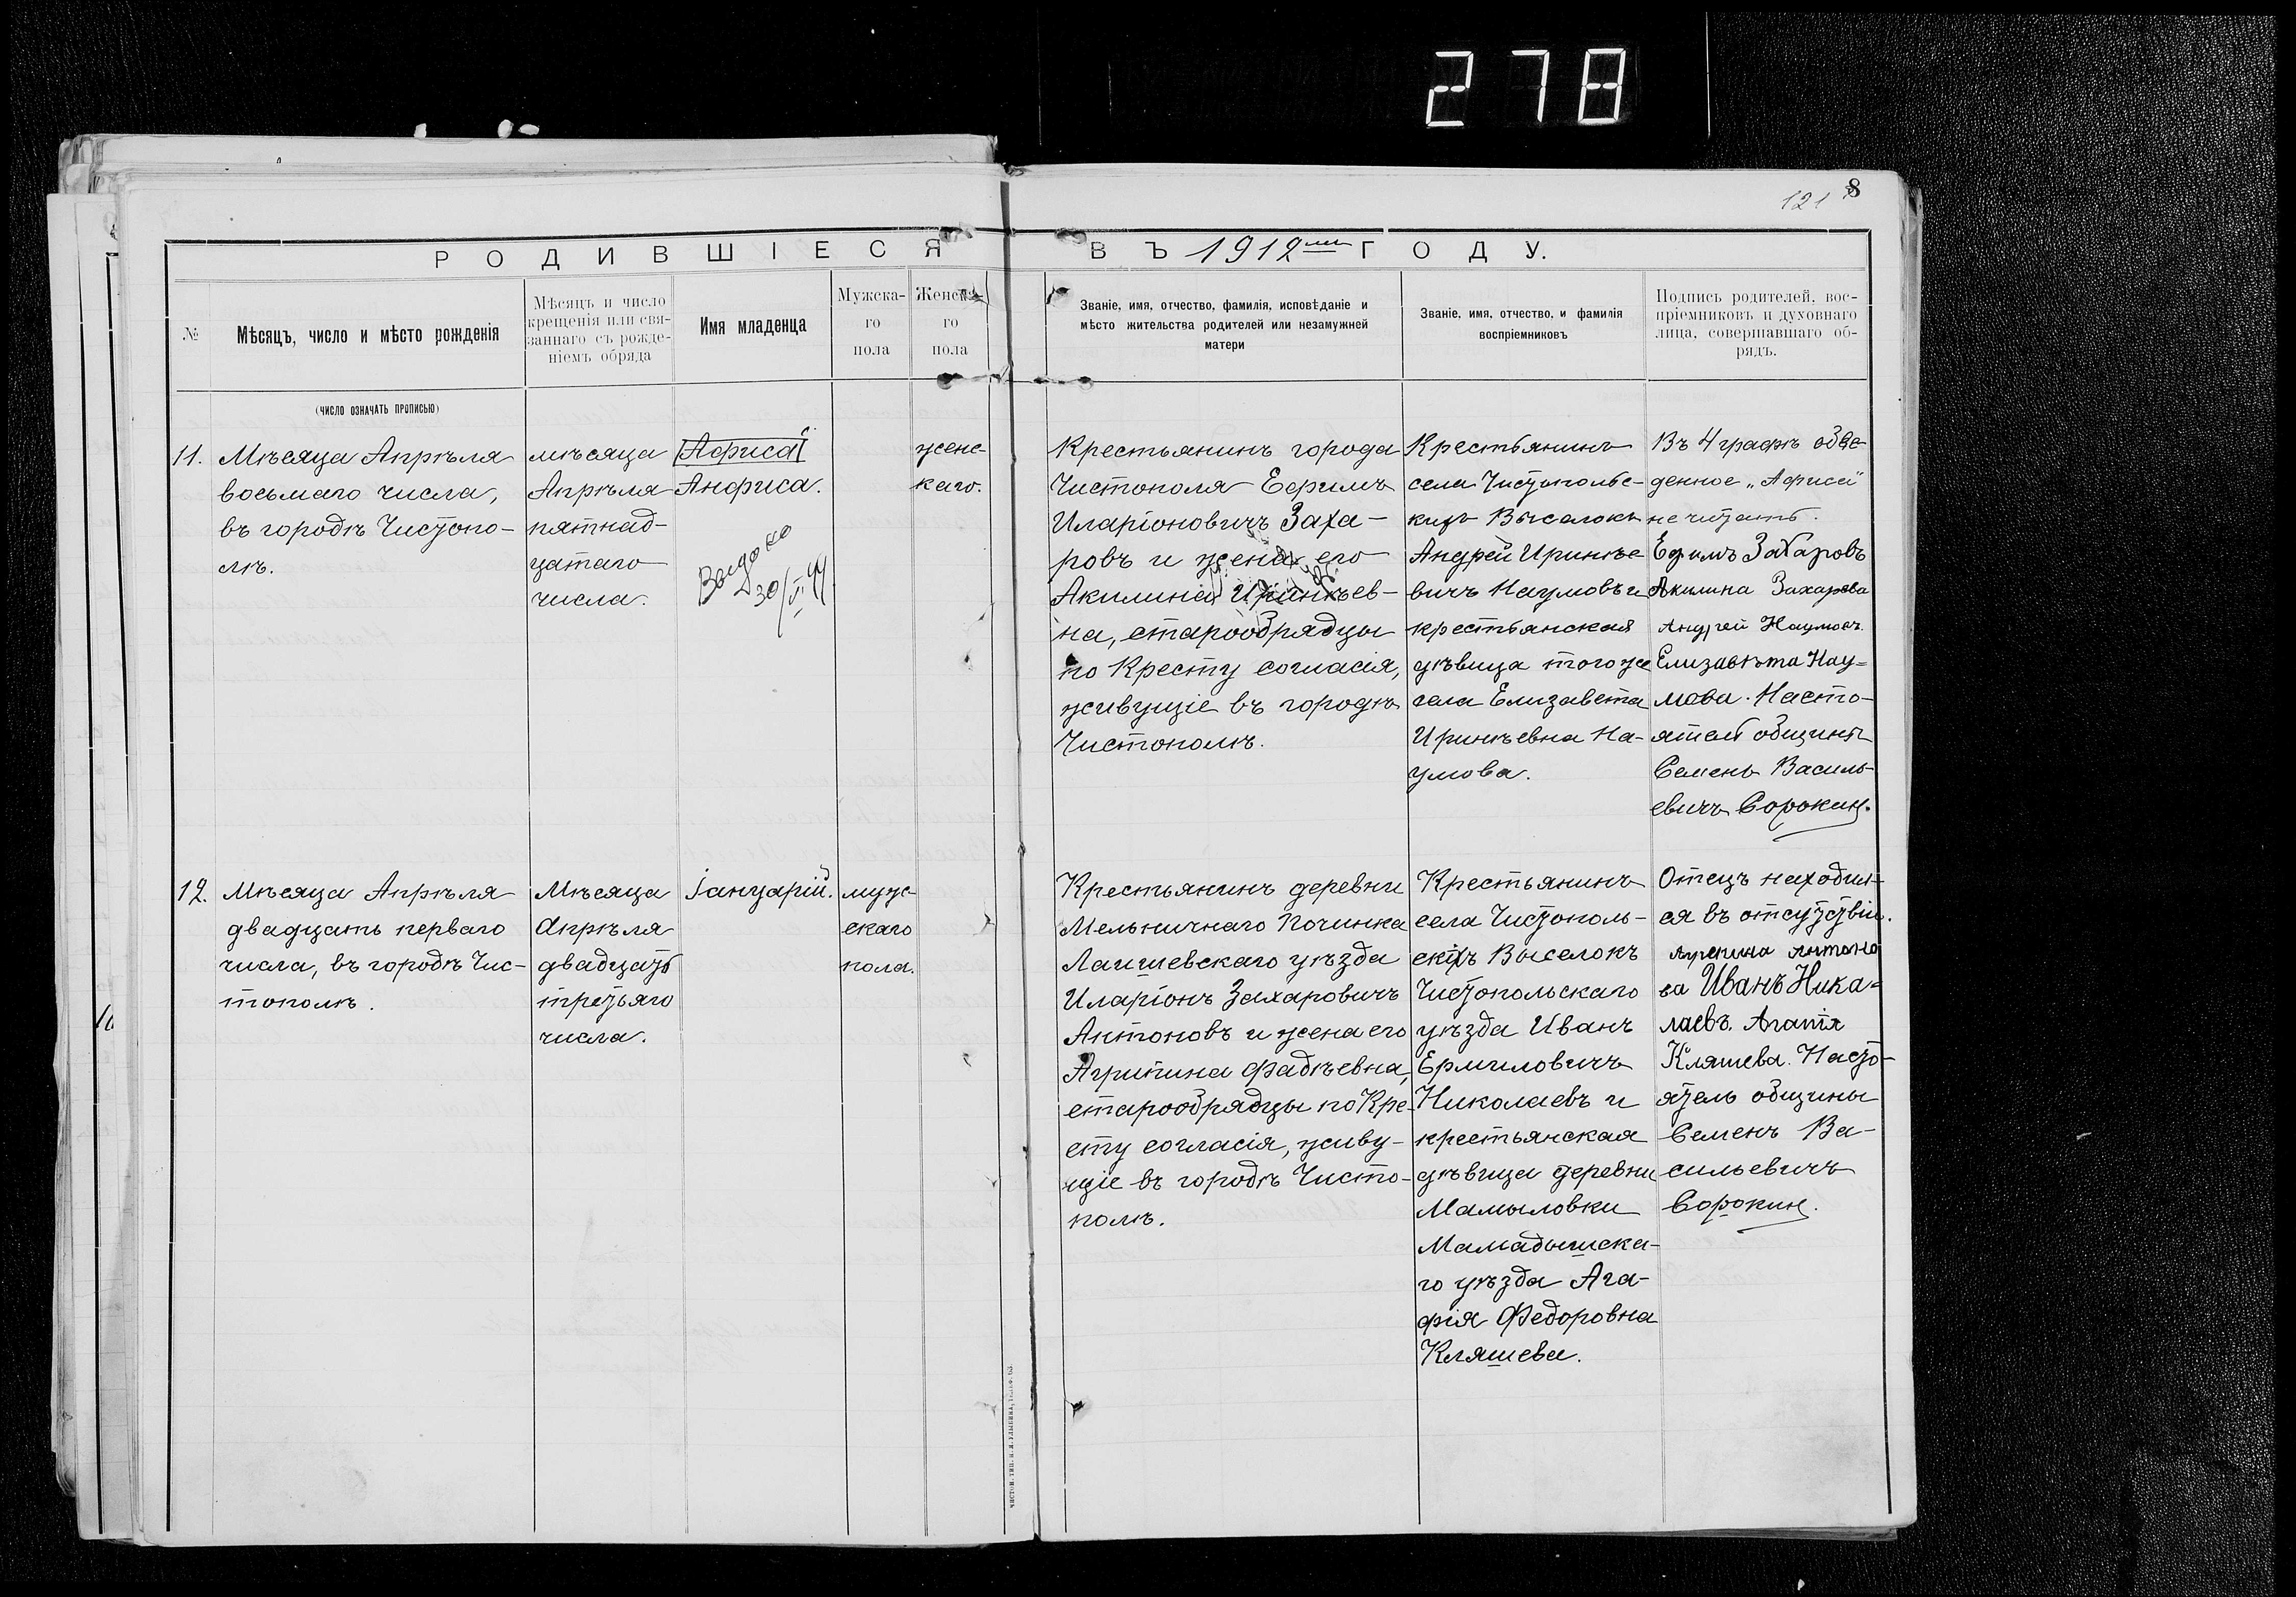 278
121 8
РОДИВШІЕСЯ ВЪ 1912мъ ГОДУ.
№
Мѣсяцъ, число и мѣсто рожденія
Мѣсяцъ и число
крещенія или свя-
заннаго съ рожде-
ніемъ обряда
Имя младенца
Мужска-
го
пола
Женска-
го
пола
Званіе, имя, отчество, фамилія, исповѣданіе и
мѣсто жительства родителей или незамужней
матери
Званіе, имя, отчество, и фамилія
воспріемниковъ
Подпись родителей, вос-
пріемниковъ и духовнаго
лица, совершавшаго об-
рядъ.
(ЧИСЛО ОЗНАЧАТЬ ПРОПИСЬЮ)
11.
Мѣсяца Апрѣля
восьмаго числа,
въ городѣ Чистопо-
лѣ.
мѣсяца
Апрѣля
пятнад-
цатаго
числа.
Афиса
Анфиса.
Выдано
30/VI 44
женс-
каго.
Крестьянинъ города
Чистополя Ефимъ
Иларіоновичъ Заха-
ровъ и жена его
Акилина Иринѣев-
на, старообрядцы
по Кресту согласія,
живущіе въ городѣ
Чистополѣ.
Крестьянинъ
села Чистопольс-
кихъ Выселокъ
Андрей Иринѣе-
вичъ Наумовъ и
крестьянская
дѣвица того же
села Елизавета
Иринѣевна На-
умова.
Въ 4 графѣ обве-
денное „Афиса"
не читать.
Ефимъ Захаровъ
Акилина Захарова
Андрей Наумовъ
Елизавѣта Нау-
мова. Насто-
ятель общины
Семенъ Василь-
евичъ Сорокин.
12.
Мѣсяца Апрѣля
двадцать перваго
числа, въ городѣ Чис-
тополѣ.
Мѣсяца
Апрѣля
двадцать
третьяго
числа.
Іануарій.
муж-
скаго
пола.
Крестьянинъ деревни
Мельничнаго Починка
Лаишевскаго уѣзда
Иларіонъ Захаровичъ
Антоновъ и жена его
Агрипина Фадѣевна,
старообрядцы по Кре-
сту согласія, живу-
щіе въ городѣ Чисто-
полѣ.
Крестьянинъ
села Чистополь-
скихъ Выселокъ
Чистопольскаго
уѣзда Иванъ
Ермиловичъ
Николаевъ и
крестьянская
дѣвица деревни
Мамыловки
Мамадышска-
го уѣзда Ага-
фія Федоровна
Кляшева.
Отецъ находил-
ся въ отсутствіи.
Агрепина Антоно
ва Иванъ Ника-
лаевъ. Агапія
Кляшева. Насто-
ятель общины
Семенъ Ва-
сильевичъ
Сорокин.